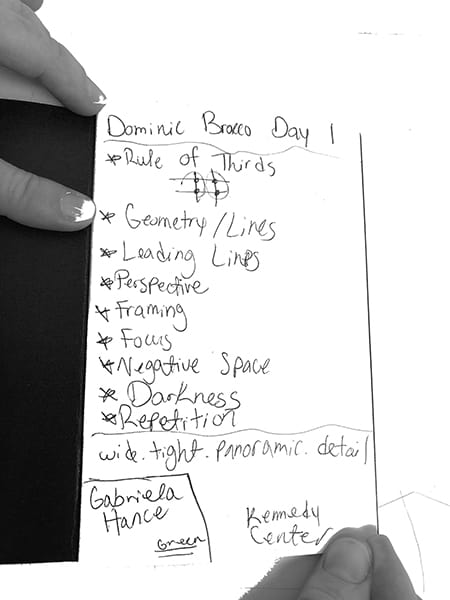 Dominic Bracco Day 1
* Rule of Thirds
* Geometry/Lines
* Leading Lines
* Perspective
* Framing
* Focus
* Negative Space
* Darkness
* Repetition
wide.tight.panoramic.detail
Gabriela
Hance
Green
Kennedy
Center